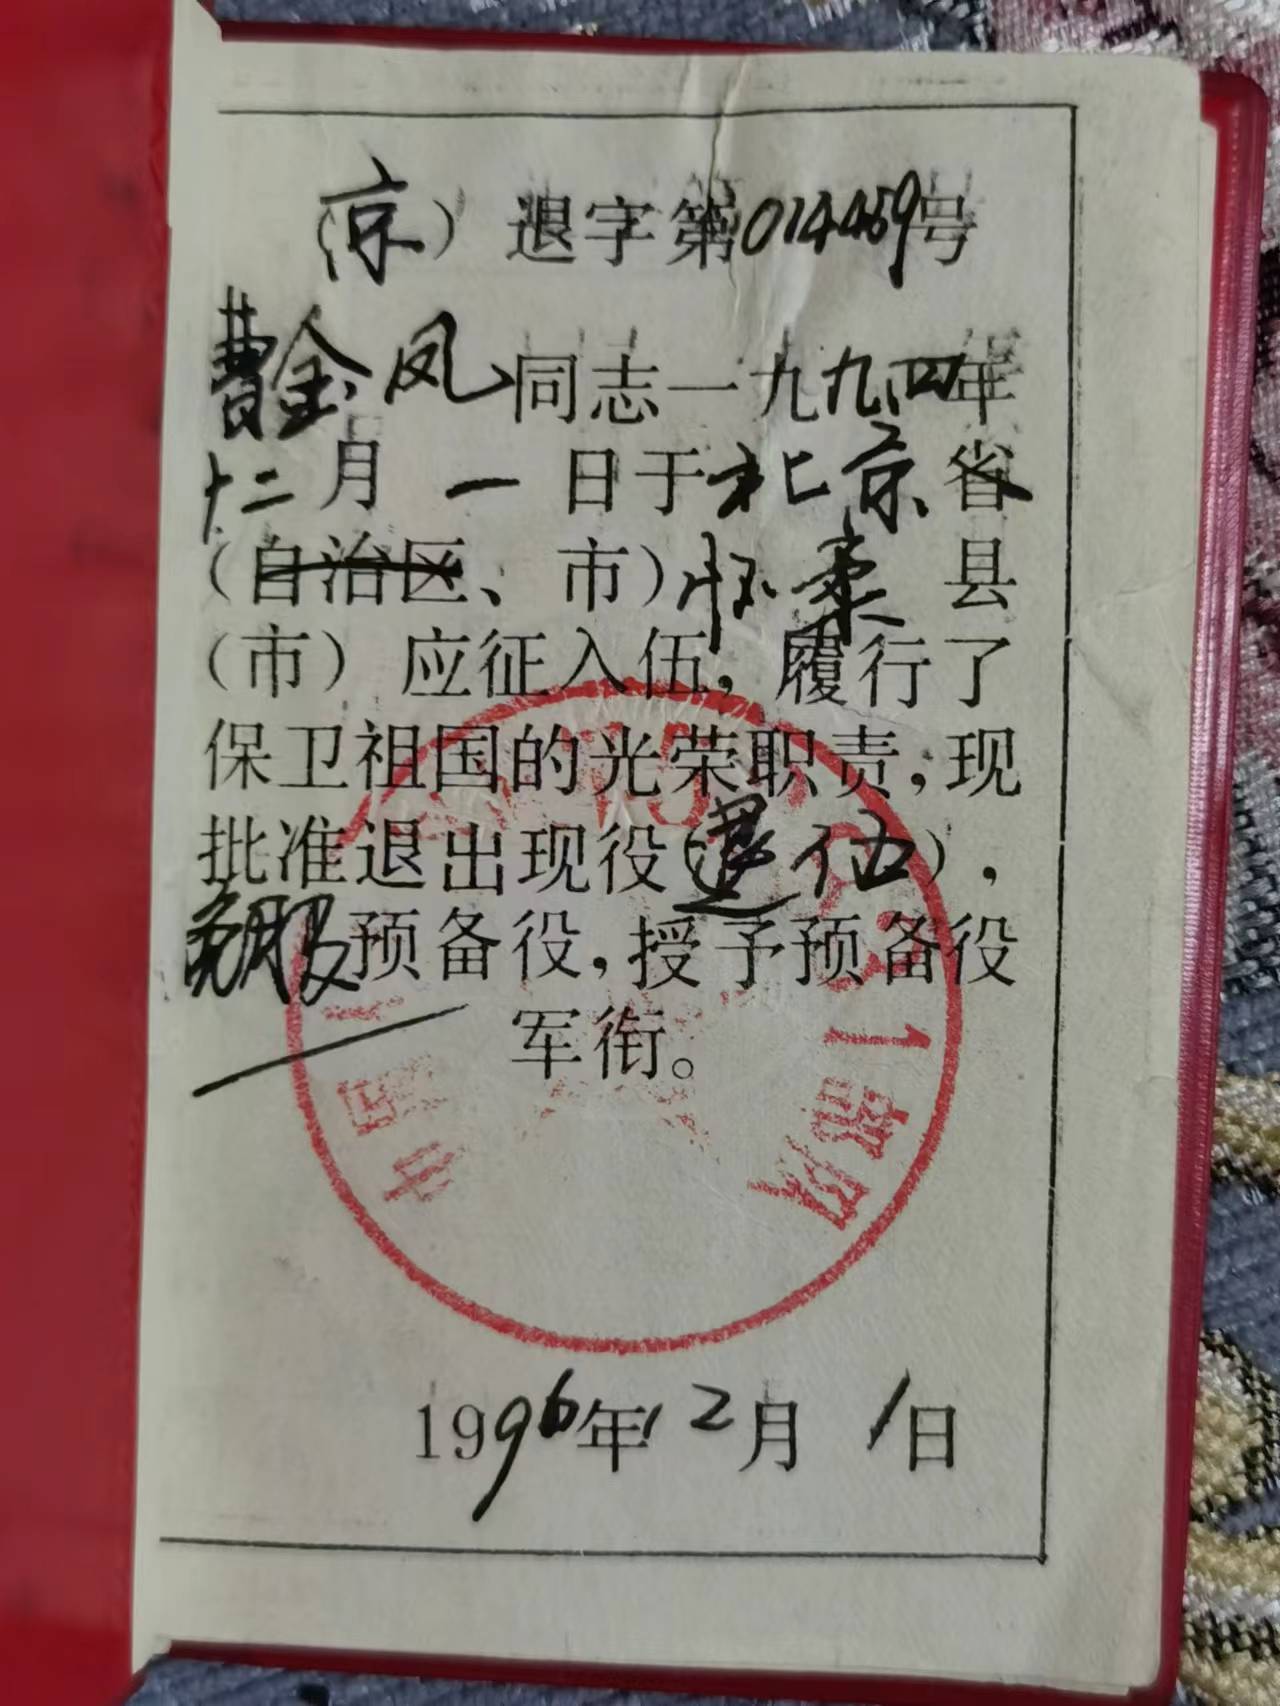 （京）退字第014469号
曹金凤同志一九九四年
十二月一日于北京省
（自治区、市）怀柔县
（市）应征入伍，履行了
保卫祖国的光荣职责，现
批准退出现役（退伍），
免服预备役，授予预备役
军衔。
中国
51部队
1996年12月1日